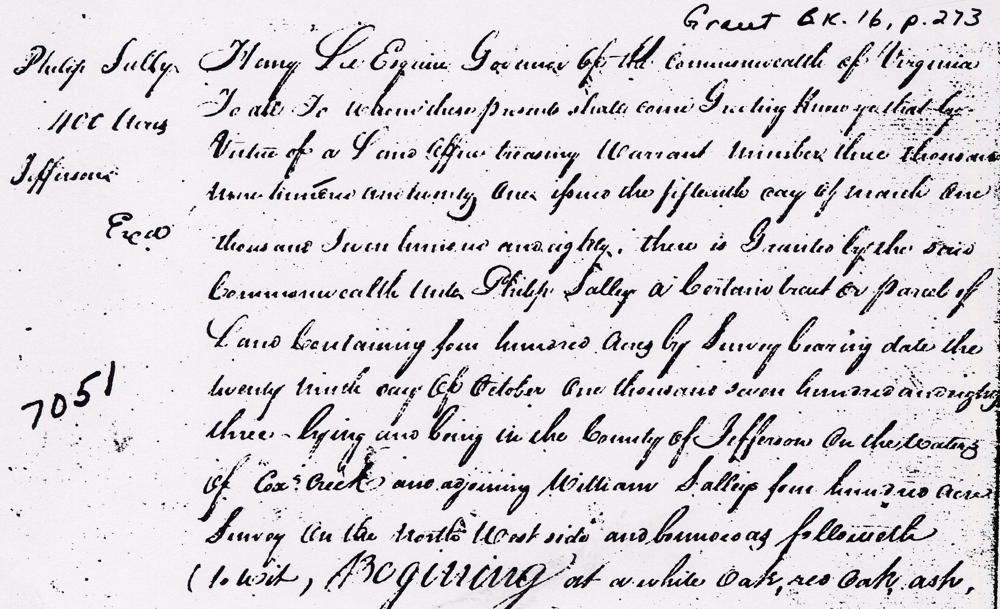 Grant BK. 16, p. 273
Philip Sally
400 Acres
Jefferson
Exd
7051
Henry Lee Esquire Governor of the Commonwealth of Virginia
To all To whom these presents shall come Greeting Know ye that by
Virtue of a Land office treasury Warrant number three thousand
nine hundred and twenty One issued the fifteenth day of march One
thousand Seven hundred and eighty, there is Granted by the said
Commonwealth unto Philip Salley a Certain tract or parcel of
Land Containing four hundred Acres by Survey bearing date the
twenty ninth day of October One thousand seven hundred and eighty
three - lying and being in the County of Jefferson On the Waters
of Cox's Creek and adjoining William Salleys four hundred Acre
Survey On the North West side and bounded as followeth
(to wit, Begining at a white Oak, red Oak, ash,